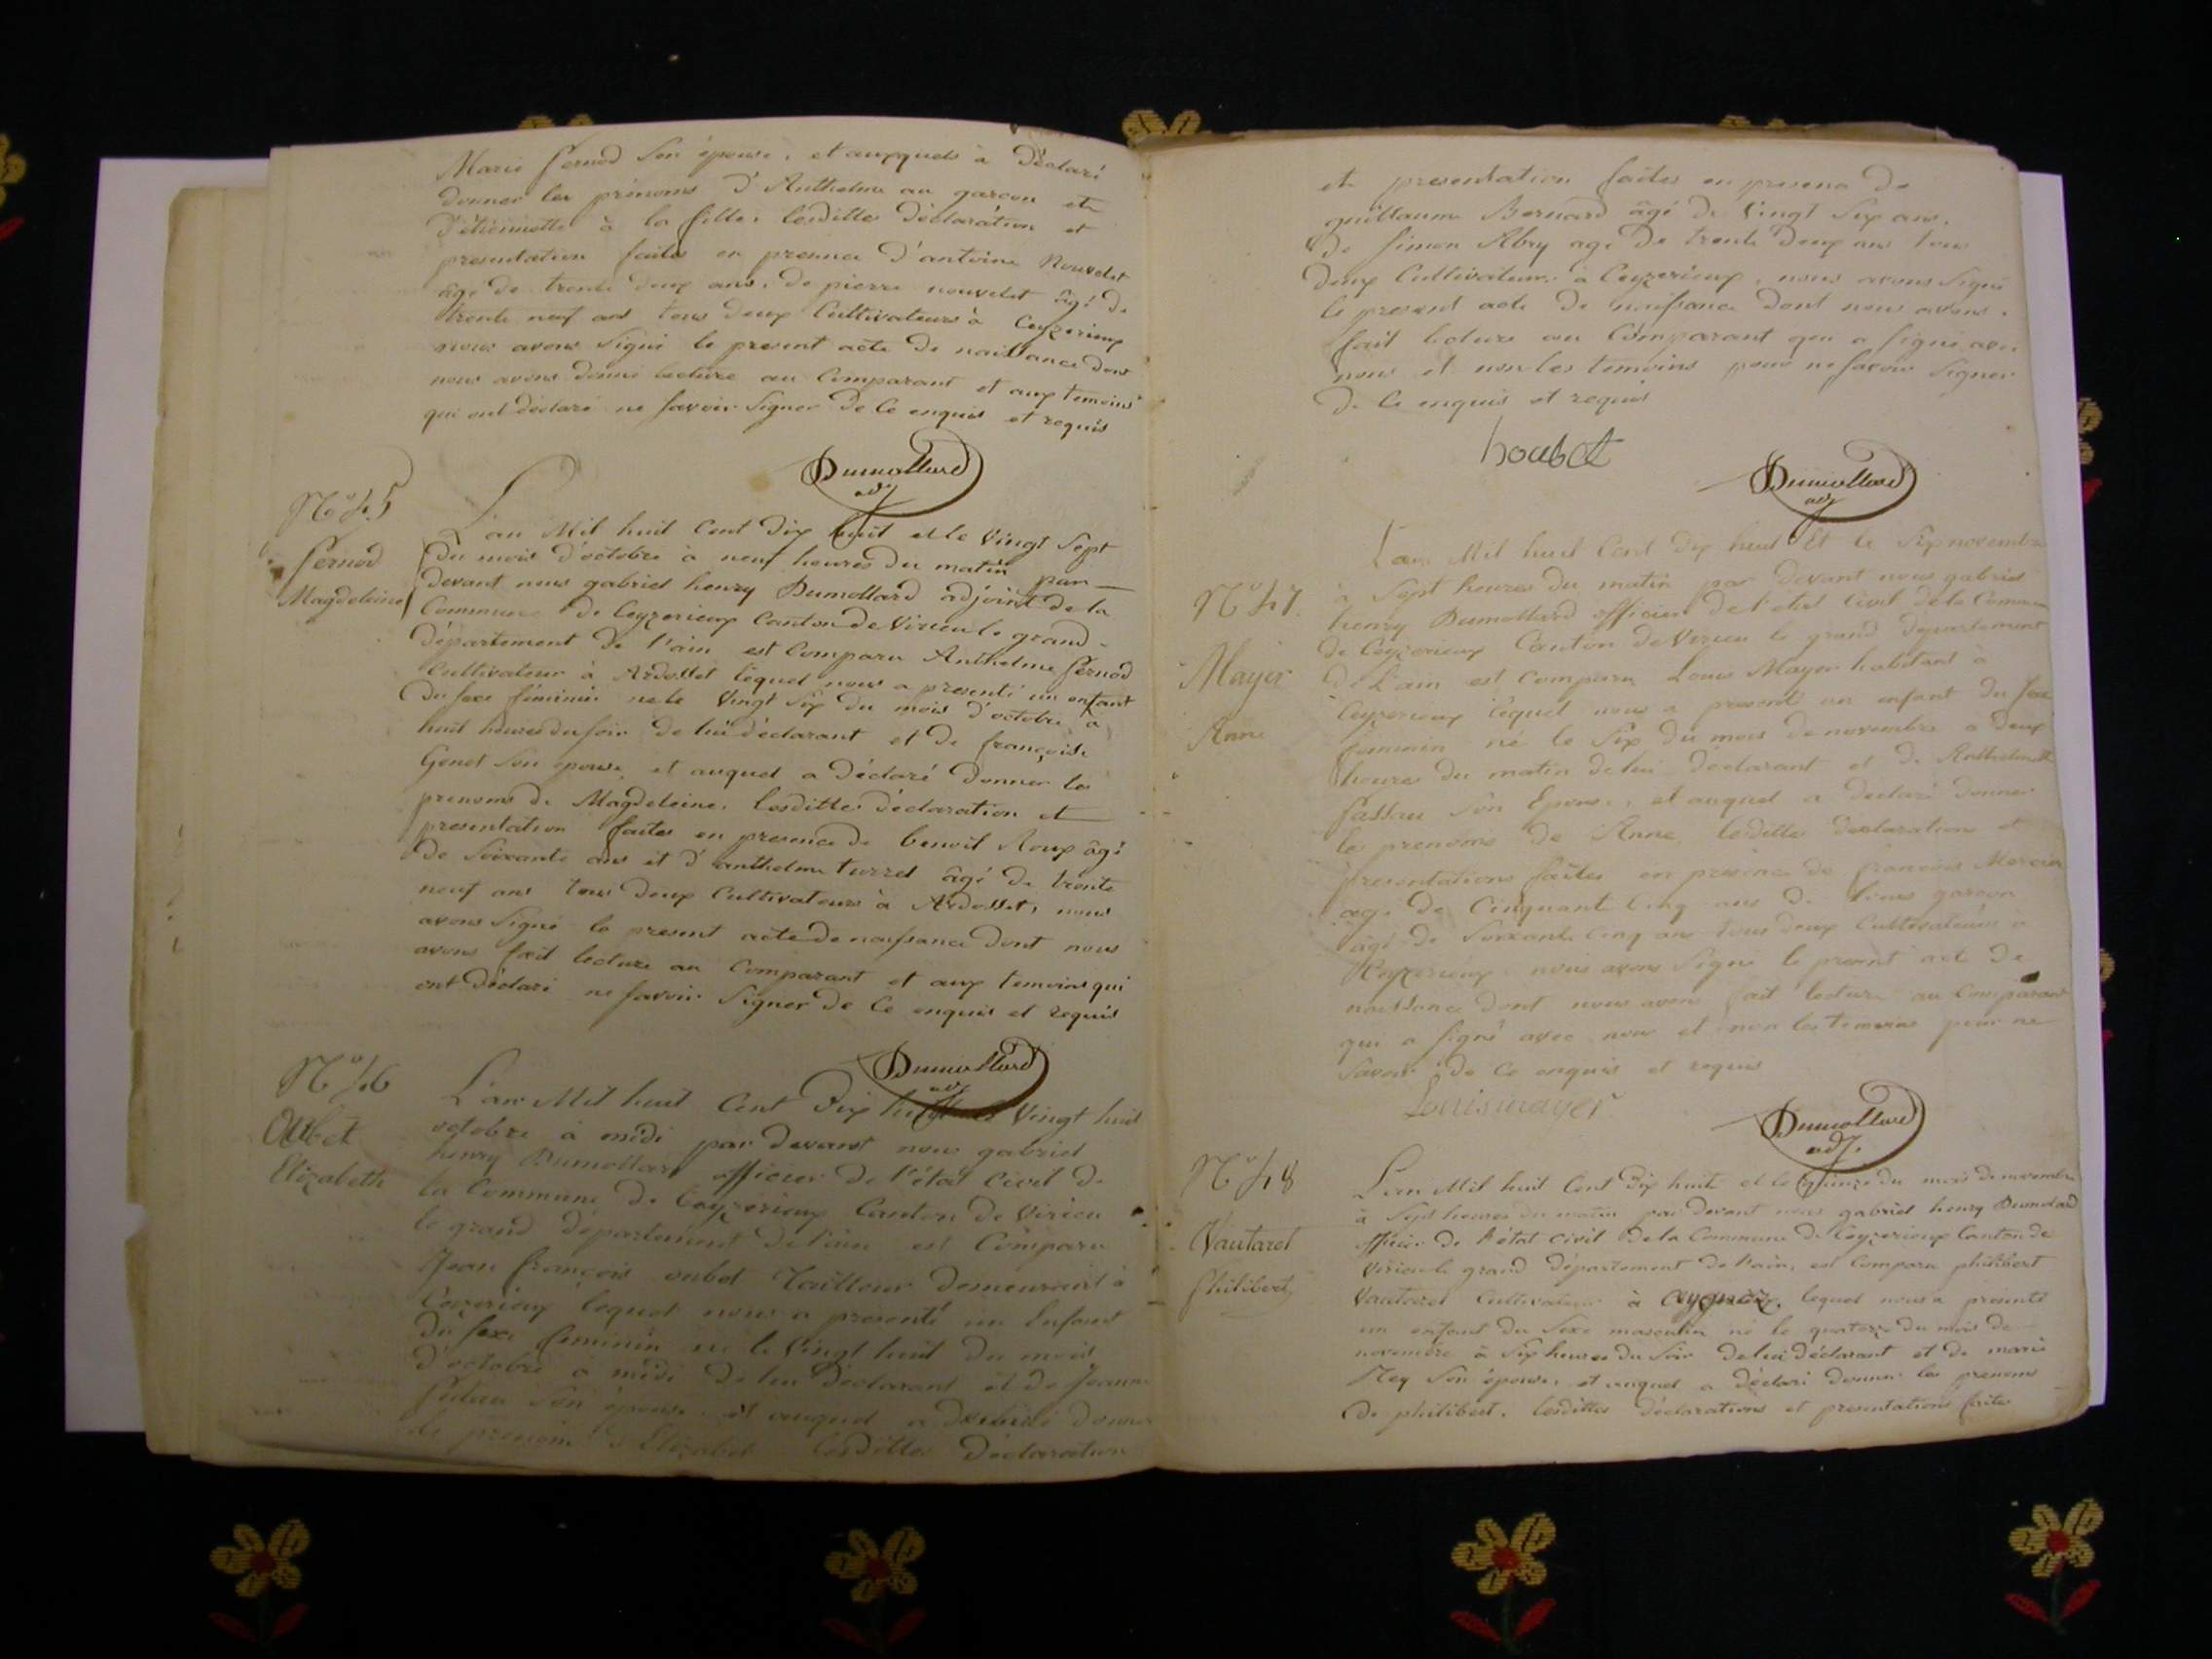 Marie Sernod Son épouse, et auxquels à Déclaré
donner les prénoms D'Anthelme au garçon et
D'étiennette à la fille, lesdittes déclaration et
presentation faites en presence D'antoine Nouvelet
âgé de trente deux ans, de pierre nouvelet âgé de
trente neuf ans tous deux Cultivateurs à Ceyzerieux
nous avons Signé le present acte de naissance dont
nous avons donné lecture au Comparant et aux temoins
qui ont déclaré ne Savoir Signer de Ce enquis et requis
Dumollard
adj
N° 45
Sernod
Magdeleine
L'an Mil huit Cent Dix huit et le Vingt Sept
Du mois D'octobre à neuf heures du matin par
devant nous gabriel henry Dumollard adjoint de la
Commune de Ceyzerieux Canton de Virieu le grand
département de l'ain est Comparu Anthelme Sernod
Cultivateur à Ardosset lequel nous a presenté un enfant
du Sexe féminin né le Vingt Six du mois d'octobre à
huit heures du Soir de lui déclarant et de françoise
Genet Son épouse, et auquel a Déclaré Donner les
prenoms de Magdeleine, lesdittes déclaration et
presentation faites en presence de benoit Roux âgé
de Soixante ans et d'anthelme turrel âgé de trente
neuf ans tous Deux Cultivateurs à Ardosset, nous
avons Signé le present acte de naissance Dont nous
avons fait lecture au Comparant et aux temoins qui
ont déclaré ne Savoir Signer de Ce enquis et requis
Dumollard
adj
N° 46
Oubet
Elizabeth
L'an Mil huit Cent Dix huit Vingt huit
octobre à midi par devant nous gabriel
henry Dumollard officier de l'état Civil de
la Commune de Ceyzerieux Canton de Virieu
le grand département de l'ain est Comparu
Jean françois oubet Tailleur demeurant à
Ceyzerieux lequel nous a presenté un Enfant
du Sexe féminin né le Vingt huit du mois
d'octobre à midi de lui Déclarant et de Jeanne
Son épouse, et auquel a Déclaré donner
le prenom d'Elizabet lesdittes Déclaration
et presentation faites en presence de
guillaume Bernard âgé de Vingt Six ans,
de Simon Abry agé de trente Deux ans tous
Deux Cultivateurs à Ceyzerieux, nous avons Signé
le present acte de naissance Dont nous avons
fait lecture au Comparant qui a Signé avec
nous et non les temoins pour ne Savoir Signer
de Ce enquis et requis
houbet
Dumollard
adj
N° 47
Mayer
Anne
L'an Mil huit Cent Dix huit Et le Six novembre
à Sept heures du matin par Devant nous gabriel
henry Dumollard officier de l'état Civil de la Commune
de Ceyzerieux Canton de Virieu le grand département
de L'ain est Comparu Louis Mayer habitant à
Ceyzerieux lequel nous a presenté un enfant du Sexe
féminin né le Six du mois de novembre à Deux
heures du matin de lui Déclarant et de Anthelmette
Passau Son Epouse, et auquel a Déclaré Donner
les prenoms de Anne, lesdittes declaration et
presentations faites en presence de françois Mercier
âgé de Cinquante Cinq ans de Louis garçon
âgé de Soixante Cinq ans tous deux Cultivateurs à
Ceyzerieux nous avons Signé le present acte de
naissance dont nous avons fait lecture au Comparant
qui a Signé avec nous et non les temoins pour ne
Savoir de Ce enquis et requis
Louis mayer
Dumollard
adj.
N° 48
Vautaret
Philibert
L'an Mil huit Cent Dix huit et le quinze du mois de novembre
à Sept heures du matin par devant nous gabriel henry Dumolard
officier de l'état Civil de la Commune de Ceyzerieux Canton de
Virieu le grand département de l'ain, est Comparu philibert
Vautaret Cultivateur à lequel nous a presenté
un enfant du Sexe masculin né le quatorze du mois de
novembre à Six heures du Soir de lui déclarant et de marie
Rey Son épouse, et auquel a déclaré donner les prenoms
de philibert, lesdittes déclarations et presentations faites